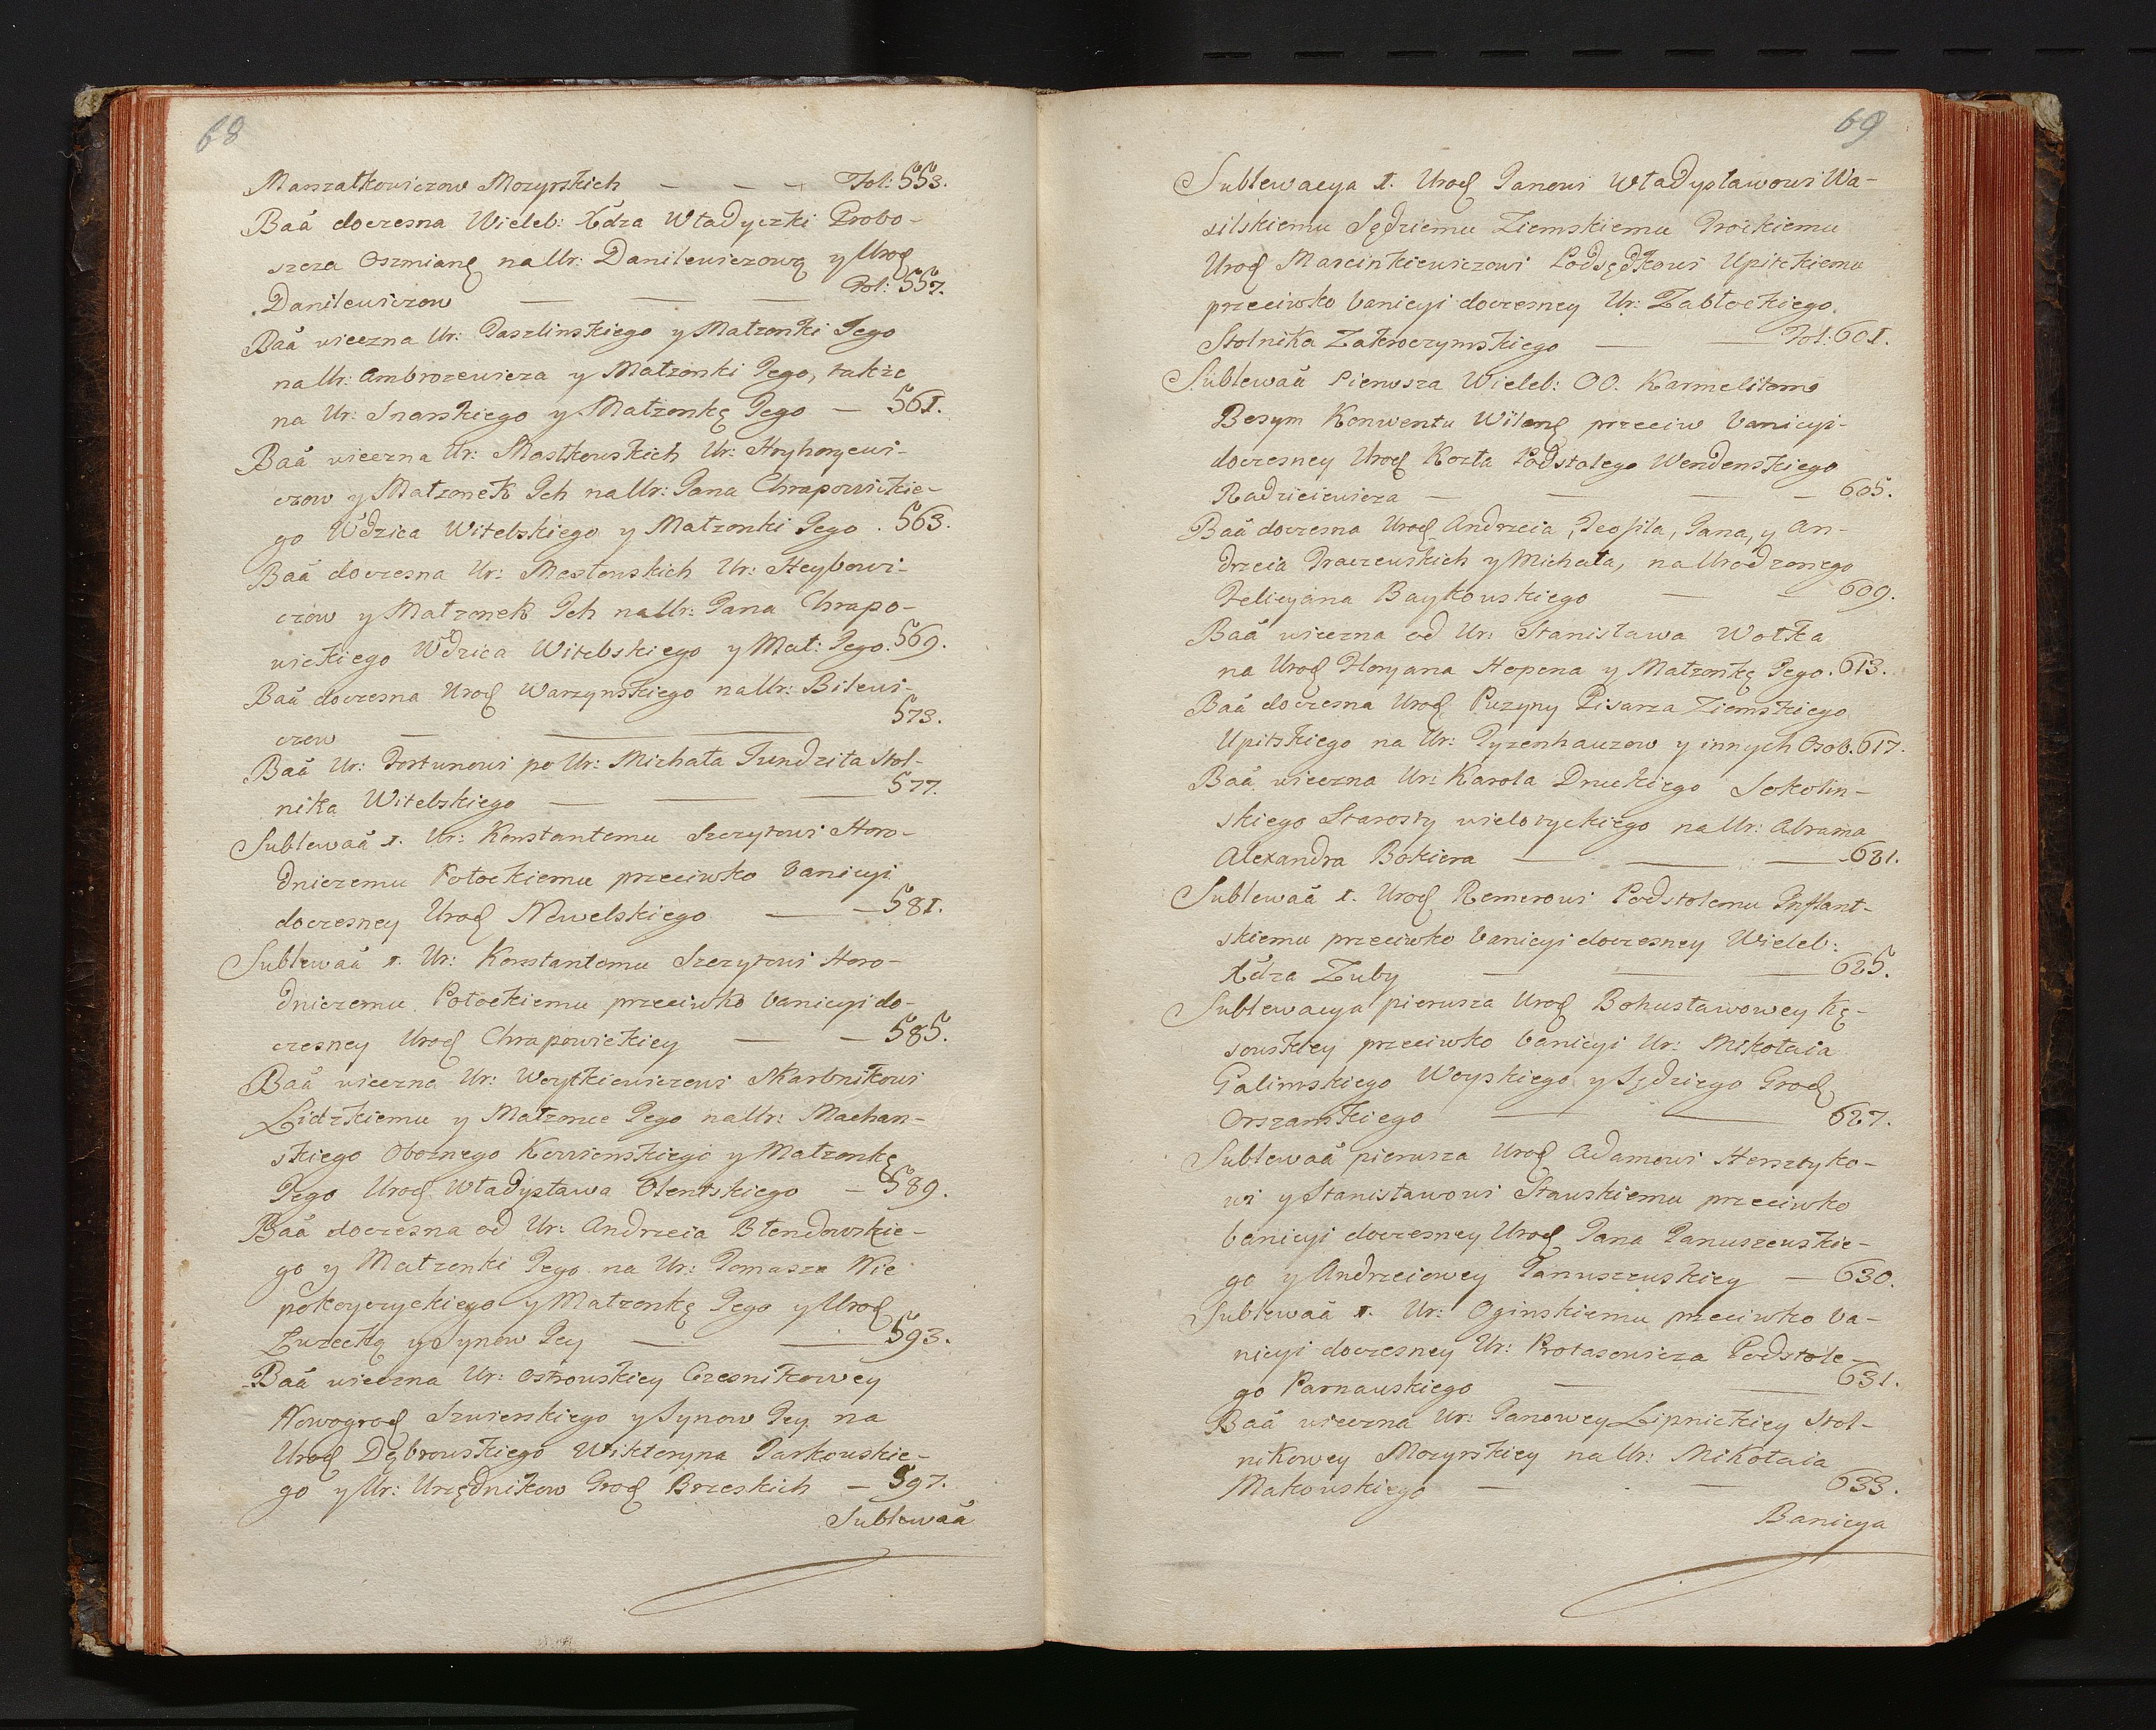 68
Marszałkowiczow Mozyrskich — — — Fol: 553.
Baã doczesna Wieleb: Xdza Władyczki Probo-
szcza Oszmianſ na Ur: Danilewiczową y Urodz
Danilewiczow — — Fol: 557.
Baã wieczna Ur: Daszlinskiego y Małzonki Jego
na Ur: Ambrozewicza y Małzonki Jego, także
na Ur: Snarskiego y Małzonkę Jego — 561.
Baã wieczna Ur: Mastkowskich Ur: Hryhorjewi-
czow y Małzonek Jch na Ur: Jana Chrapowickie-
go Wdzica Witebskiego y Małzonki Jego . 563.
Baã doczesna Ur: Mostowskich Ur: Heybowi-
czow y Małzonek Jch na Ur: Jana Chrapo-
wickiego Wdzica Witebskiego y Mał: Jego. 569.
Baã doczesna Urodz Warzynskiego na Ur: Bilewi-
czow — — 573.
Baã Ur: Fortunowi po Ur: Michała Tundziła Stol-
nika Witebskiego — — — 577.
Sublewaã 1. Ur: Konstantemu Szczytowi Horo-
dniczemu Połockiemu przeciwko banicyi
doczesney Urodz Newelskiego — — 581.
Sublewaã 1. Ur: Konstantemu Szczytowi Horo-
dniczemu Połockiemu przeciwko banicyi do-
czesney Urodz Chrapowickiey — — 585.
Baã wieczna Ur: Woytkiewiczowi Skarbnikowi
Lidzkiemu y Małzonce Jego na Ur: Machan-
skiego Oboznego Kowienskiego y Małzonkę
Jego Urodz Władysława Olentskiego — 589.
Baã doczesna od Ur: Andrzeia Błendowskie-
go y Małzonki Jego na Ur: Tomasza Nie
pokoyczyckiego y Małzonkę Jego y Urodz
Zurecką y Synow Jey — — 593.
Baã wieczna Ur: Ostrowskiey Czesnikowey
Nowogrodz Szwierskiego y Synow Jey na
Urodz Dębrowskiego Wiktoryna Parkowskie-
go y Ur: Urzędnikow Grodz Brzeskich — 597.
Sublewaã
69
Sublewacya 1. Urodz Panowi Władysławowi Wa-
silskiemu Sędziemu Ziemskiemu Trockiemu
Urodz Marcinkiewiczowi Podsędkowi Upitskiemu
przeciwko banicyi doczesney Ur: Zabłockiego
Stolnika Zakroczymskiego — — Fol: 601.
Sublewaã Pierwsza Wieleb: OO. Karmelitom
Bosym Konwentu Wilenſ przeciw banicyi
doczesney Urodz Kozła Podstolego Wendenskiego
Radzieiewicza — — — — 605.
Baã doczesna Urodz Andrzeia, Teofila, Jana, y An-
drzeia Praczewskich y Michała, na Urodzonego
Felicyana Baykowskiego — — 609.
Baã wieczna od Ur: Stanisława Wołka
na Urodz Floryana Hopena y Małzonkę Jego. 613.
Baã doczesna Urodz Puzyny Pisarza Ziemskiego
Upitskiego na Ur: Tyzenhauzow y innych Osob. 617.
Baã wieczna Ur: Karola Druckiego Sokolin-
skiego Starosty wielotyckiego na Ur: Abrama
Alexandra Bokiera — — — 621.
Sublewaã 1. Urodz Remerowi Podstolemu Inflant-
skiemu przeciwko banicyi doczesney Wieleb:
Xdza Zuby — — — 625.
Sublewacya pierwsza Urodz Bohusławowey Kę-
sowskiey przeciwko banicyi Ur: Mikołaia
Galimskiego Woyskiego y Sędziego Grodz
Orszanskiego — — 627.
Sublewaã pierwsza Urodz Adamowi Hersztyko-
wi y Stanisławowi Stawskiemu przeciwko
banicyi doczesney Urodz Jana Januszewskie-
go y Andrzeiowey Januszewskiey — 630.
Sublewaã 1. Ur: Oginskiemu przeciwko ba-
nicyi doczesney Ur: Protasowicza Podstole-
go Parnawskiego — — 631.
Baã wieczna Ur: Janowey Lipnickiey Stol-
nikowey Mozyrskiey na Ur: Mikołaia
Makowskiego — — 633.
Banicya